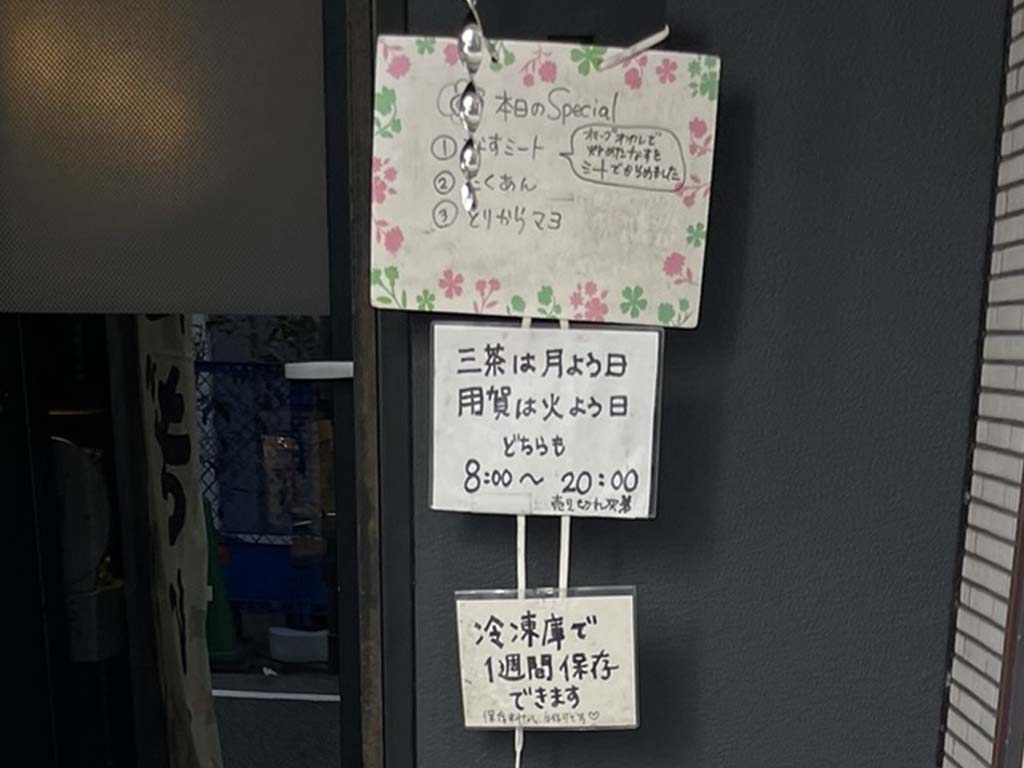 本日のSpecial
① なすミート
オリーブオイルで
炒めたなすを
ミートでからめました
② たくあん
③ とりからマヨ
三茶は月よう日
用賀は火よう日
どちらも
8:00〜 20:00
売り切れ次第
冷凍庫で
1週間保存
できます